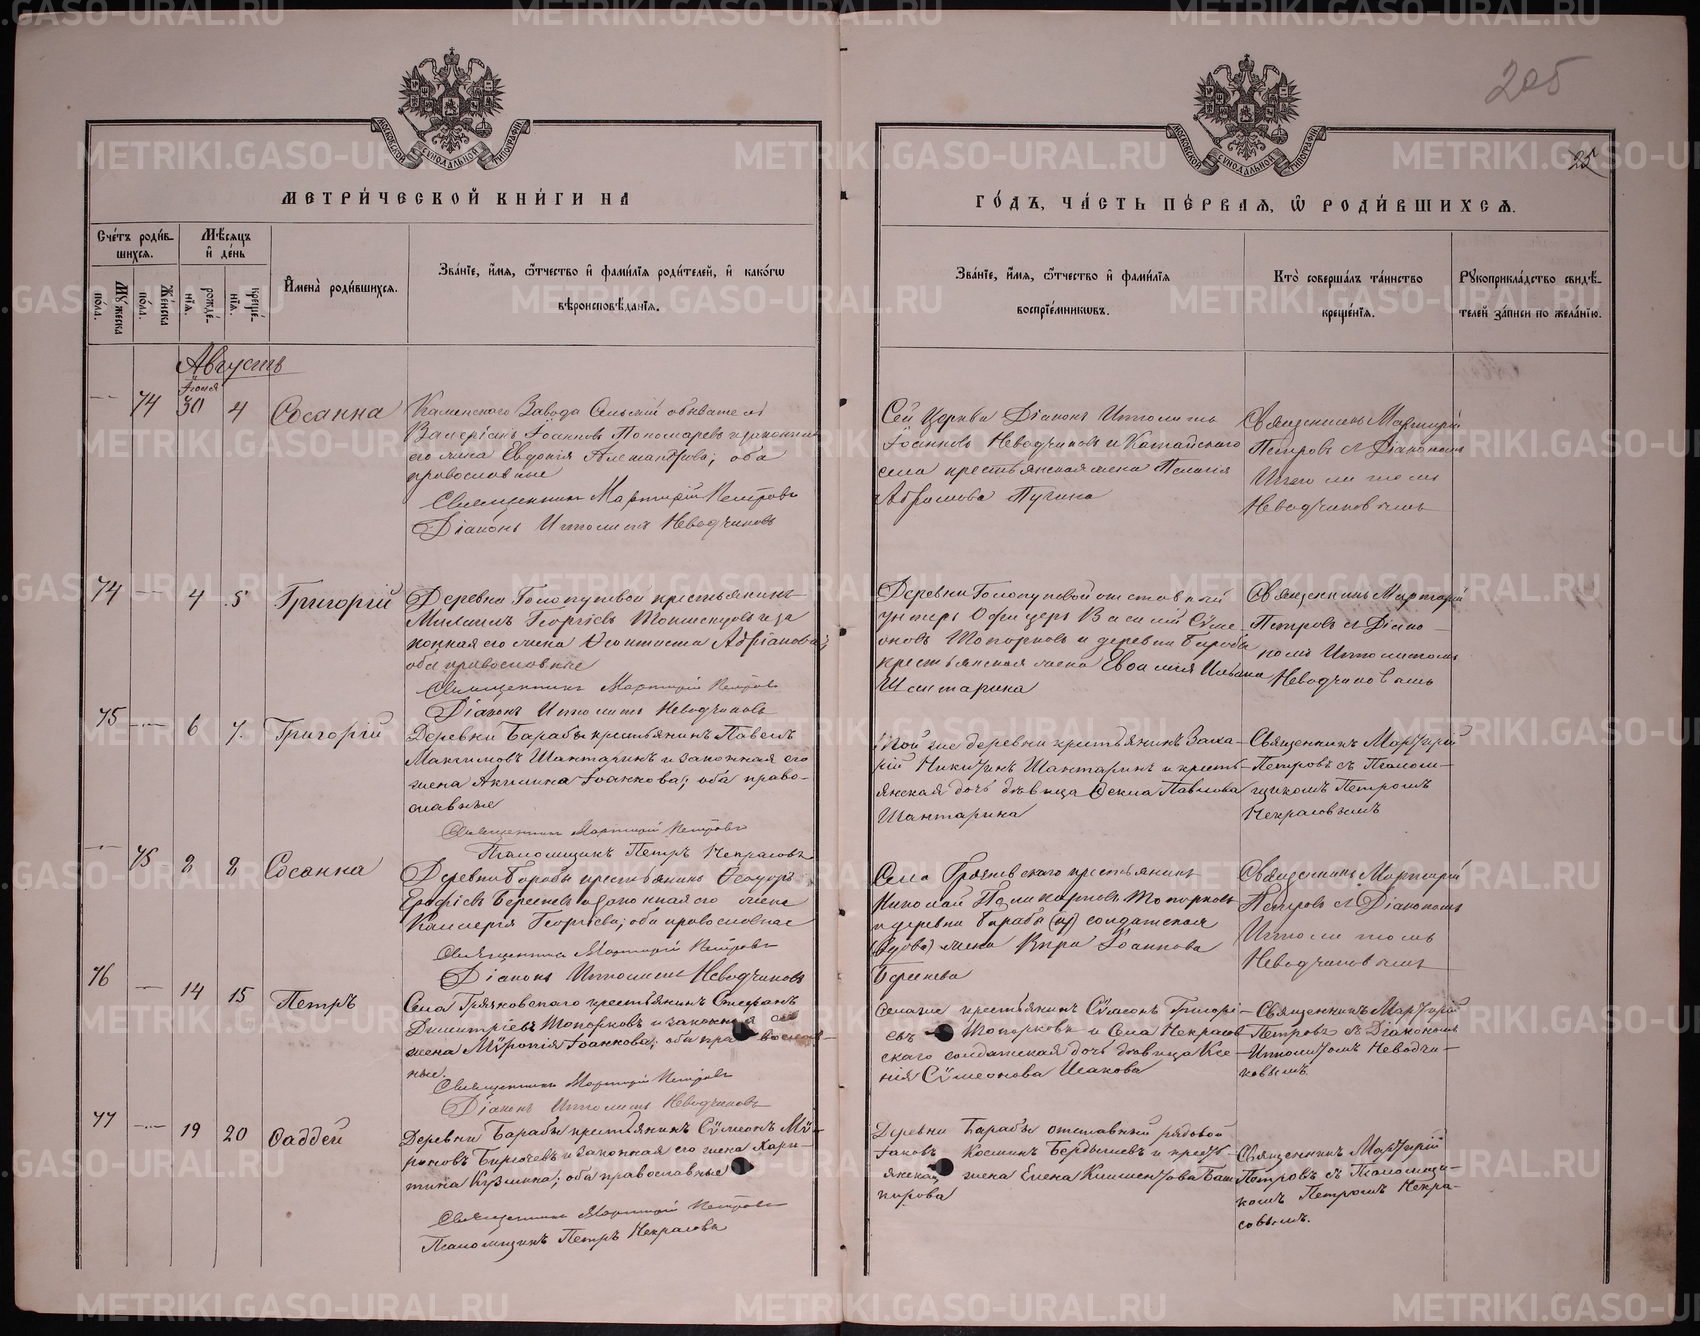 205
25
МОСКОВСКОЙ СѴНОДАЛЬНОЙ ТИПОГРАФІИ
МОСКОВСКОЙ СѴНОДАЛЬНОЙ ТИПОГРАФІИ
МЕТРИ́ЧЕСКОЙ КНИ́ГИ НА
ГО́ДЪ, ЧА́СТЬ ПЕ́РВАЯ, Ѡ РОДИ́ВШИХСЯ.
Сче́тъ роди́вшихся.
Мѣ́сяцъ и де́нь
Му́жеска по́ла.
Же́нска по́ла.
рожде́нія.
креще́нія.
Имена̀ роди́вшихся.
Зва́ніе, и́мя, ѻ҆́тчество и҆ фами́лія роди́телей, и҆ како́гѡ вѣроисповѣ́данія.
Зва́ніе, и́мя, ѻ҆́тчество и҆ фами́лія воспріе́мникѡвъ.
Кто̀ соверша́лъ та́инство креще́нія.
Рукоприкла́дство свидѣ́телей за́писи по жела́нію.
Августъ
Іюля
74 30 4 Сосанна
Каменского Завода Сельскій обыватель
Валеріанъ Іоанновъ Пономаревъ и законная
его жена Евдокія Александрова; оба
православные
Священникъ Мартирій Петровъ
Діаконъ Ипполитъ Неводчиковъ
Сей Церкви Діаконъ Ипполитъ
Іоанновъ Неводчиковъ и Катайского
села крестьянская жена Пелагія
Абрамова Пугина
Священникъ Мартирій
Петровъ съ Діакономъ
Ипполитомъ
Неводчиковымъ
74 4 5 Григорій
Деревни Голопуповой крестьянинъ
Михаилъ Георгіевъ и за
конная его жена Адріанова;
оба православные
Священникъ Мартирій Петровъ
Діаконъ Ипполитъ Неводчиковъ
Деревни Голопуповой отставной
унтеръ Офицеръ Василій Сѵме
оновъ Топорковъ и деревни Барабы
крестьянская жена Ильина
Шантарина
Священникъ Мартирій
Петровъ съ Діако
номъ Ипполитомъ
Неводчиковымъ
75 6 7 Григорій
Деревни Барабы крестьянинъ Павелъ
Максимовъ Шантаринъ и законная его
жена Акилина Іоаннова; оба право-
славные
Священникъ Мартирій Петровъ
Псаломщикъ Петръ Некрасовъ
Той же деревни крестьянинъ Заха-
рій Никитинъ Шантаринъ и кресть-
янская дочь дѣвица Ѳекла Павлова
Шантарина
Священникъ Мартирій
Петровъ съ Псалом-
щикомъ Петромъ
Некрасовымъ
75 2 2 Сосанна
Деревни Барабы крестьянинъ Ѳеодоръ
и законная его жена
Георгіева; оба православные
Священникъ Мартирій Петровъ
Діаконъ Ипполитъ Неводчиковъ
Села Грязновского крестьянинъ
Николай Поликарповъ Топорковъ
и деревни Барабы солдатская
жена Іоаннова
Священникъ Мартирій
Петровъ съ Діакономъ
Ипполитомъ
Неводчиковымъ
76 14 15 Петръ
Села Грязновского крестьянинъ Стефанъ
Димитріевъ Топорковъ и законная его
жена Мѵропія Іоаннова; оба православ-
ные.
Священникъ Мартирій Петровъ
Діаконъ Ипполитъ Неводчиковъ
крестьянинъ Сѵмеонъ Григорі-
евъ Топорковъ и Села Некрасов
скаго солдатская дочь дѣвица Ксе-
нія Сѵмеонова Исакова
Священникъ Мартирій
Петровъ съ Діакономъ
Ипполитомъ Неводчи-
ковымъ
77 19 20 Ѳаддей
Деревни Барабы крестьянинъ Сѵмеонъ Мѵ-
роновъ и законная его жена Хари-
тина Кузмина; оба православные
Священникъ Мартирій Петровъ
Псаломщикъ Петръ Некрасовъ
Деревни Барабы отставный рядовой
Іаковъ Косминъ Бердышевъ и кресть-
янская жена Елена Климентова Баш
кирова
Священникъ Мартирій
Петровъ съ Псаломщи-
комъ Петромъ Некра-
совымъ.
METRIKI.GASO-URAL.RU